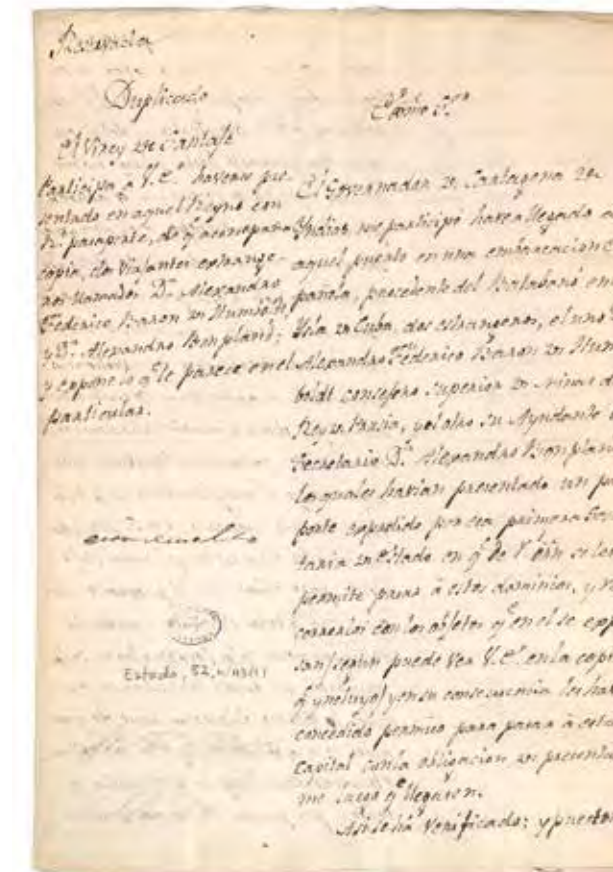 Reservada
Duplicado
El Virey de Santafé
Participa a V.E. haverse pre-
sentado en aquel Reyno con
Rl. pasaporte, de qe. acompaña
copia, dos viajantes extrange-
ros llamados Dn. Alexandro
Federico Baron de Humboldt
y Dn. Alexandro Bonpland;
y expone lo qe. le parece en el
particular.
Estado, 52,
Exmo. Sr.
El Governador de Cartagena de
Yndias me participó haver llegado a
aquel puerto en una embarcacion
pañola, procedente del Batabanó en
Ysla de Cuba, dos estrangeros, el uno
Alexandro Federico Baron de Hum-
boldt consejero superior de minas
Rey de Prusia, y el otro su Ayudante
Secretario Dn. Alexandro Bonpland
los quales havian presentado un
porte expedido por esa primera
taria de Estado en qe. de Rl. orn se les
permite pasar á estos dominios, y
correrlos con los objetos qe. en el se
san (segun puede ver V.E. en la copia
qe. yncluyo) y en su consecuencia les
concedido permiso para pasar á esta
Capital con la obligacion de
me luego qe. llegaren.
Asi se há verificado; y puestos